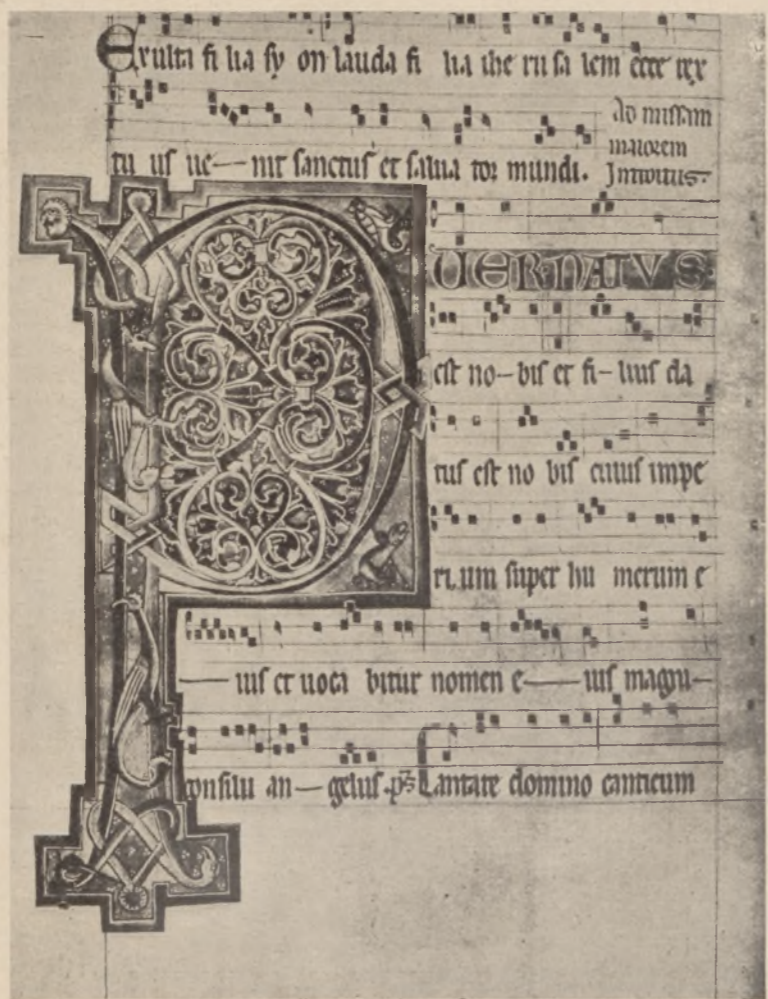 Exulta fi lia sy on lauda fi lia ihe ru sa lem ecce rex
tu us ue—nit sanctus et salua tor mundi.
Ad missam
maiorem
Introitus.
P UER NATUS
est no—bis et fi—lius da
tus est no bis cuius impe
ri um super hu merum e
—ius et uoca bitur nomen e—ius magni—
consilii an—gelus. ps Cantate domino canticum